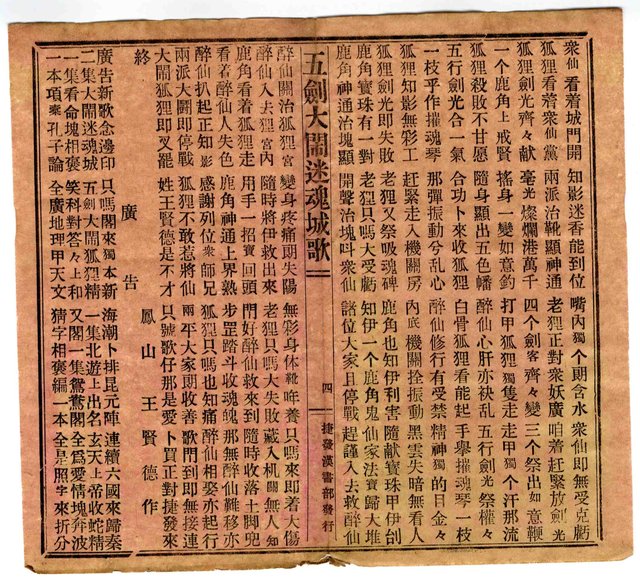 衆仙看着城門開 知影迷香能到位 嘴內獨个朗含水 衆仙即無受克虧
狐狸看着衆仙黨 兩派治靴顯神通 老狸正對衆妖廣 咱着赶緊放劍光
狐狸劍光齊々献 毫光燦爛港萬千 四個劍客齊々變 三个祭出如意鞭
一個鹿角上戒賢 搖身一變如意鈎 打甲狐狸獨隻走 走甲獨个汗那流
狐狸殺敗不甘愿 隨身顯出五色幡 醉仙心肝亦袂乱 五行劍光祭權々
五行劍光合一氣 合功卜來收狐狸 白骨狐狸看能起 手舉摧魂琴一枝
一枝乎作摧魂琴 那彈振動兮乱心 醉仙修行有受禁 精神獨的目金々
狐狸知影無彩工 赶緊走入機關房 內底機關拴振動 黑雲失暗無看人
狐狸劍光即失敗 老狸又祭吸魂碑 鹿角也知伊利害 隨獻寶珠甲伊刣
鹿角寶珠有一對 老狸只嗎大受虧 知伊一个鹿角鬼 仙家法寶歸大堆
鹿角神通治塊顯 開聲治塊呌衆仙 諸位大家且停戰 赶謹入去救醉仙
五劍大鬧迷魂城歌 四 捷發漢書部發行
醉仙關治狐狸宮 變身疼痛朗失陽 無彩身休靴年養 只嗎來即者大傷
醉仙入去狸宮內 隨時將伊救出來 老狸只嗎大失敗 藏入机關無人知
鹿角看着狐狸走 用手一招寶回頭 門好醉仙救來到 隨時收落土脚兜
看着醉仙人失色 鹿角神通上界熟 步罡踏斗收魂魄 那無醉仙難移亦
醉仙扒起正知影 感謝列位衆師兄 狐狸只嗎也知痛 醉仙相娶亦起行
兩派大鬧即停戰 狐狸不敢惹將仙 兩平大家朗收善 歌門到即無接連
大鬧狐狸即叉罷 姓王賢德是不才 只號歌仔那是愛 卜買正對捷發來
終 鳳山 王賢德作
廣告
廣告新歌念邊印 只嗎閣來獨本新 海潮卜排昆元陣 連續六國來歸秦
二集大鬧迷魂城 五劍大鬧狐狸精 一集北遊上出名 玄天上帝收蛇精
一集看命塊相褒 笑科對答々上和 又閣一集鴛鴦閣 全為愛情塊奔波
一本項橐孔子論 全廣地理甲天文 猜字相褒編一本 全是照字來折分